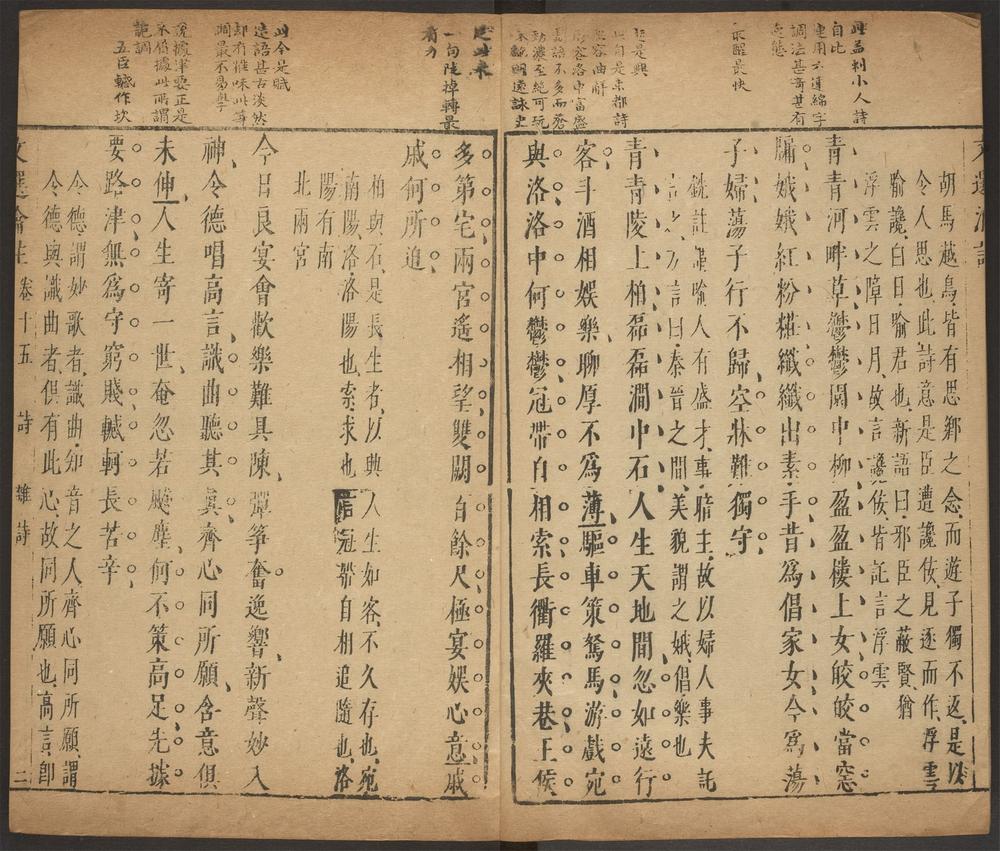 此益刺小人詩
自比
連用六疊綿字
調法甚奇甚有
逸態
醒最快
是興
此句是東都詩
洛中富盛
語不多而
勁濃至絕可玩
明遠詠史
胡馬越鳥皆有思鄉之念而遊子獨不返是以
令人思也此詩意是臣遭讒佞見逐而作浮雲
喻讒白日喻君也新語曰邪臣之蔽賢猶
浮雲之障日月故言讒佞皆託言浮雲
青青河畔草鬱鬱園中柳盈盈樓上女皎皎當窓
牖娥娥紅粉糚纖纖出素手昔爲倡家女今爲蕩
子婦蕩子行不歸空牀難獨守
銑註喻人有盛才事暗主故以婦人事夫託
言之方言曰秦晉之間美貌謂之娥倡樂也
青青陵上柏磊磊澗中石人生天地間忽如遠行
客斗酒相娛樂聊厚不爲薄驅車策駑馬游戲宛
與洛洛中何鬱鬱冠帶自相索長衢羅夾巷王侯
一句陡掉轉最
有力
此今是賦
造語甚古淡然
却有雅味此等
調最不易學
說據津要正是
不俏據此所謂
詭調
五臣轗作坎
多第宅兩宮遙相望雙闕百餘尺極宴娛心意戚
戚何所迫
柏與石是長生者以興人生如客不久存也宛
南陽洛洛陽也索求也言冠帶自相追隨也洛
陽有南
北兩宮
今日良宴會歡樂難具陳彈筝奮逸響新聲妙入
神令德唱高言識曲聽其眞齊心同所願含意俱
未伸人生寄一世奄忽若飇塵何不策高足先據
要路津無爲守窮賤轗軻長苦辛
令德謂妙歌者識曲知音之人齊心同所願謂
令德與識曲者俱有此心故同所願也高言卽
文選瀹註卷十五 詩 雜詩 二